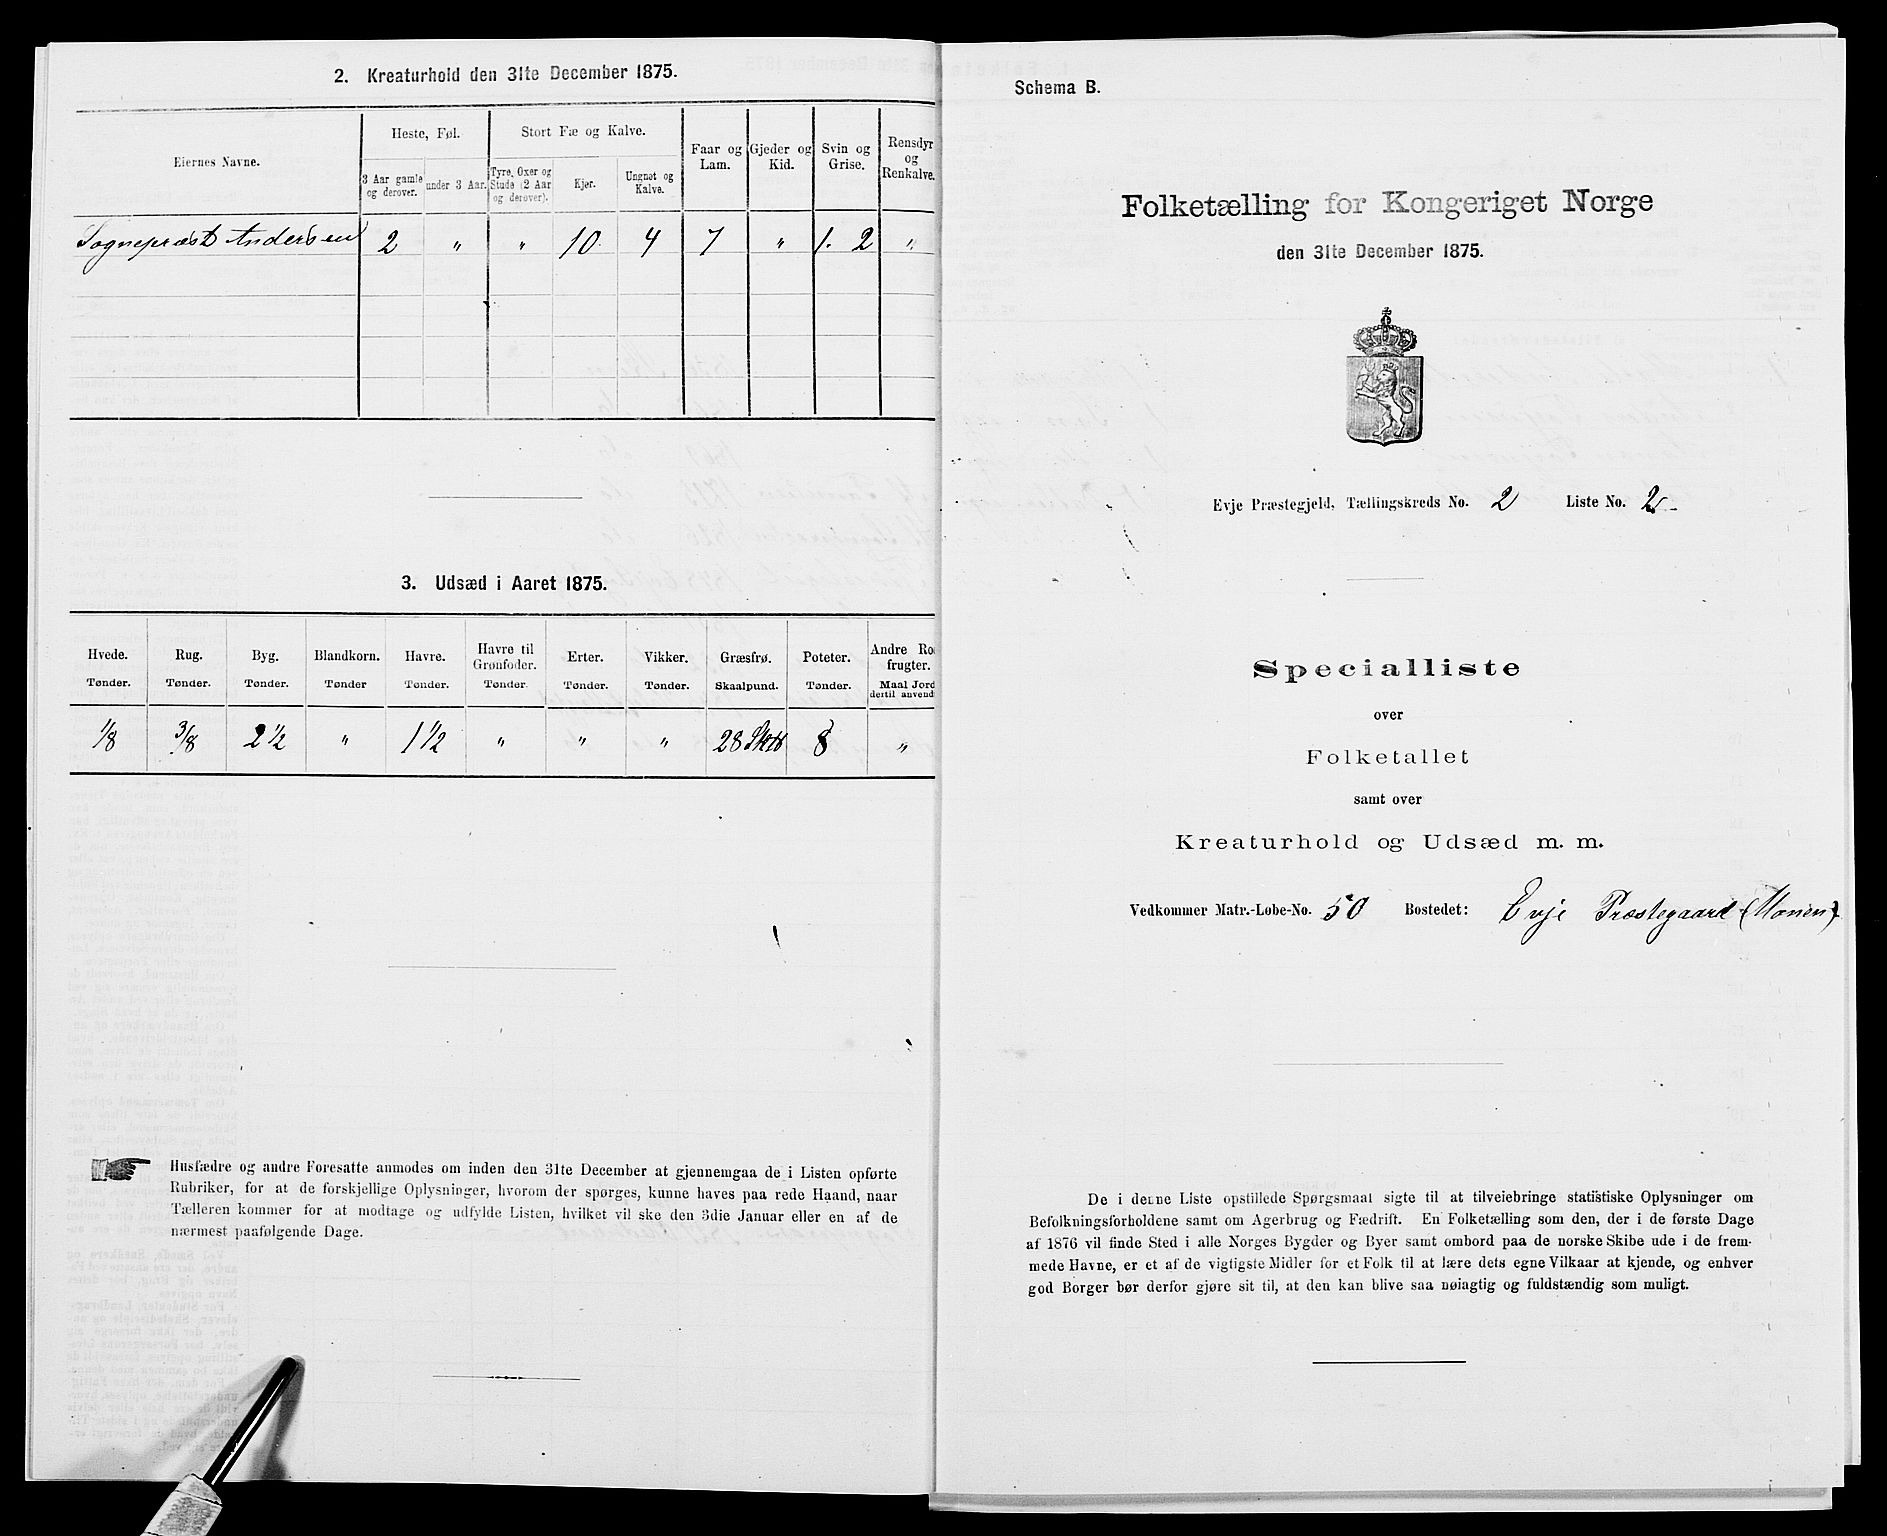 2. Kreaturhold den 31te December 1875.
Eiernes Navne.
Heste, Føl.
Stort Fæ og Kalve.
Faar og Lam.
Gjeder og Kid.
Svin og Grise.
Rensdyr og Renkalve.
3 Aar gamle og derover.
under 3 Aar.
Tyre, Oxer og Stude (2 Aar og derover).
Kjør.
Ungnøt og Kalve.
Sognepræst Andersen 2 " " 10 4 7 " 1. 2 "
3. Udsæd i Aaret 1875.
Hvede. Rug. Byg. Blandkorn. Havre. Havre til Grønfoder. Erter. Vikker. Græsfrø. Poteter. Andre Ro frugter.
Tønder. Tønder. Tønder. Tønder Tønder. Tønder Tønder. Tønder. Skaalpund. Tønder. Maal Jord dertil anvend
1/8 3/8 2 1/2 " 1 1/2 " " " 28 8 "
Husfædre og andre Foresatte anmodes om inden den 31te December at gjennemgaa de i Listen opførte
Rubriker, for at de forskjellige Oplysninger, hvorom der spørges, kunne haves paa rede Haand, naar
Tælleren kommer for at modtage og udfylde Listen, hvilket vil ske den 3die Januar eller en af de
nærmest paafølgende Dage.
Schema B.
Folketælling for Kongeriget Norge
den 31te December 1875.
Evje Præstegjeld, Tællingskreds No. 2 Liste No. 2
Specialliste
over
Folketallet
samt over
Kreaturhold og Udsæd m. m.
Vedkommer Matr.-Løbe-No. 50 Bostedet: Evje Præstegaard (Monen)
De i denne Liste opstillede Spørgsmaal sigte til at tilveiebringe statistiske Oplysninger om
Befolkningsforholdene samt om Agerbrug og Fædrift. En Folketælling som den, der i de første Dage
af 1876 vil finde Sted i alle Norges Bygder og Byer samt ombord paa de norske Skibe ude i de frem-
mede Havne, er et af de vigtigste Midler for et Folk til at lære dets egne Vilkaar at kjende, og enhver
god Borger bør derfor gjøre sit til, at den kan blive saa nøiagtig og fuldstændig som muligt.